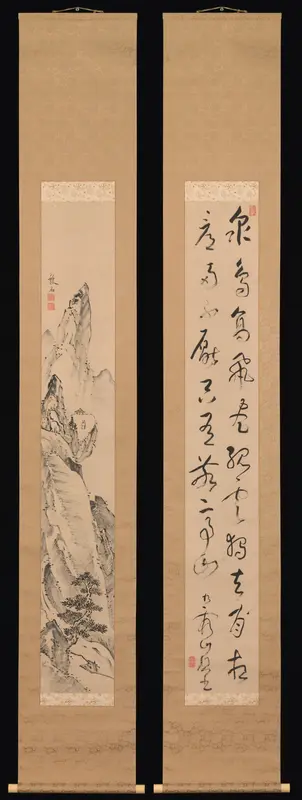 衆鳥高飛盡孤雲獨去閒相
看兩不厭只有敬亭山
霞山樵